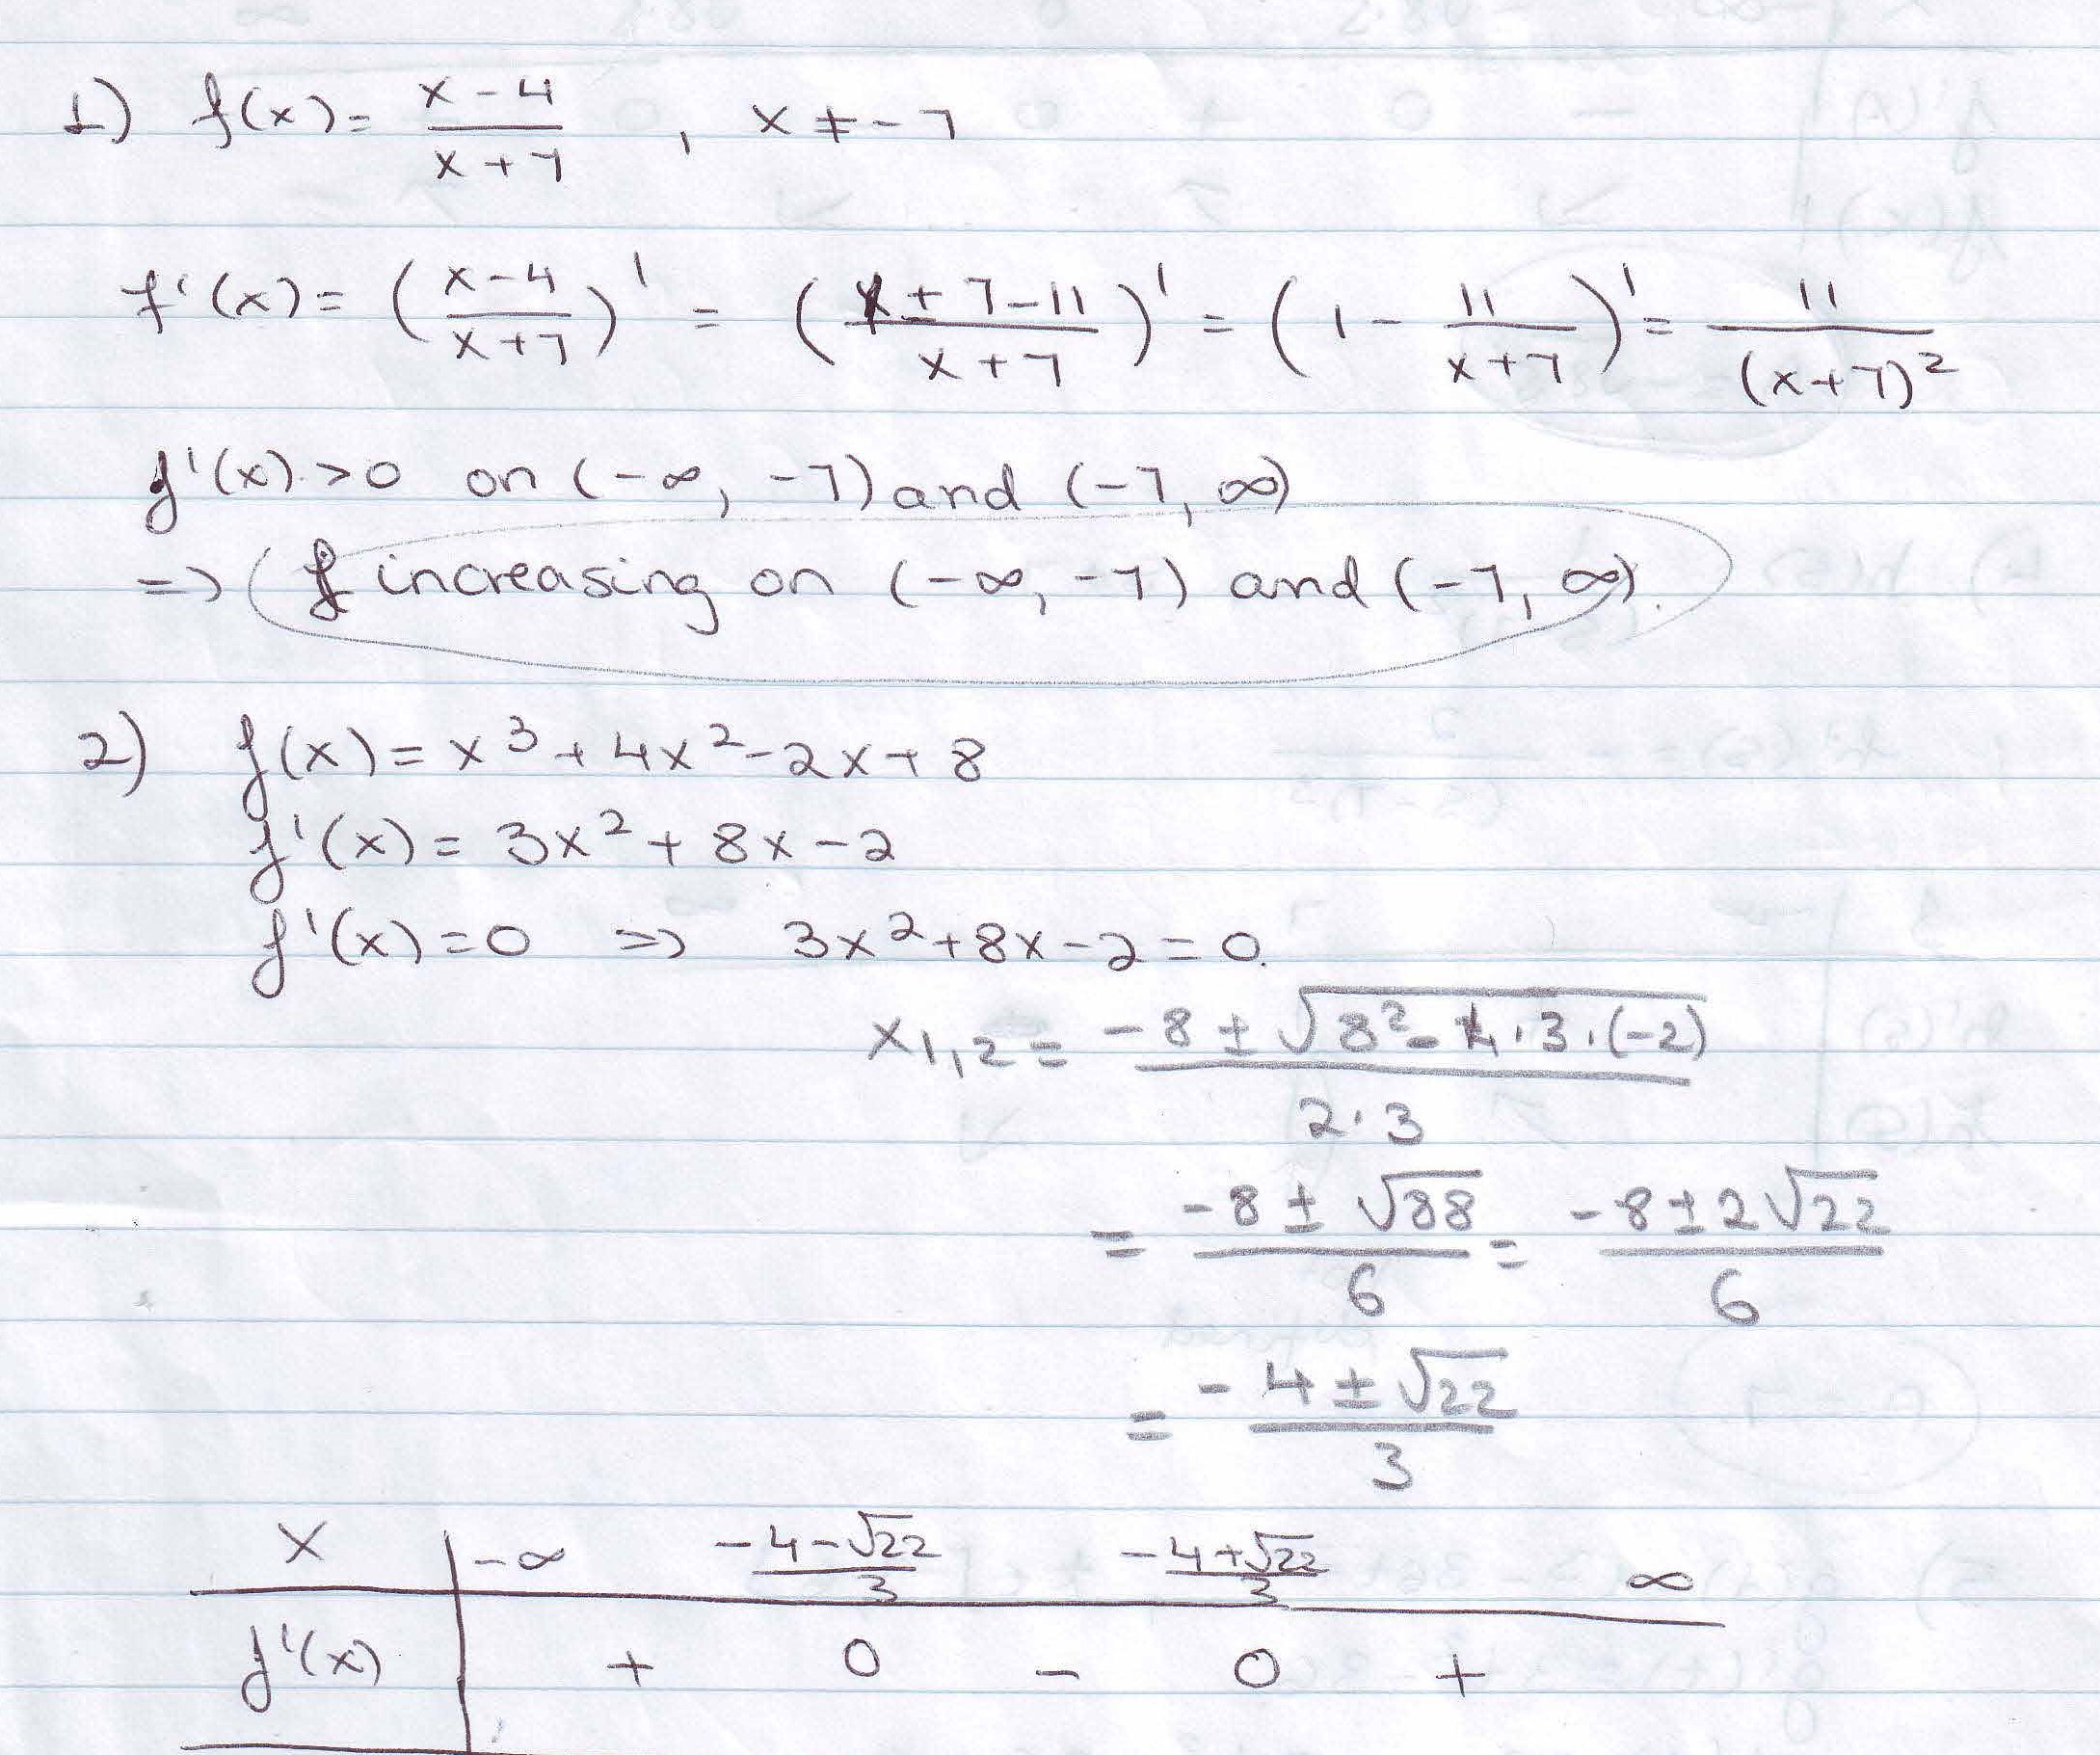 1) f(x) = (x-4)/(x+7) , x ≠ -7
f'(x) = ((x-4)/(x+7))' = ((x+7-11)/(x+7))' = (1 - 11/(x+7))' = 11/(x+7)²
f'(x) > 0 on (-∞, -7) and (-7, ∞)
=> f increasing on (-∞, -7) and (-7, ∞).
2) f(x) = x³ + 4x² - 2x + 8
f'(x) = 3x² + 8x - 2
f'(x) = 0 => 3x² + 8x - 2 = 0.
x₁,₂ = (-8 ± √(8² - 4·3·(-2)))/(2·3)
= (-8 ± √88)/6 = (-8 ± 2√22)/6
= (-4 ± √22)/3
x | -∞ (-4-√22)/3 (-4+√22)/3 ∞
f'(x) | + 0 - 0 +